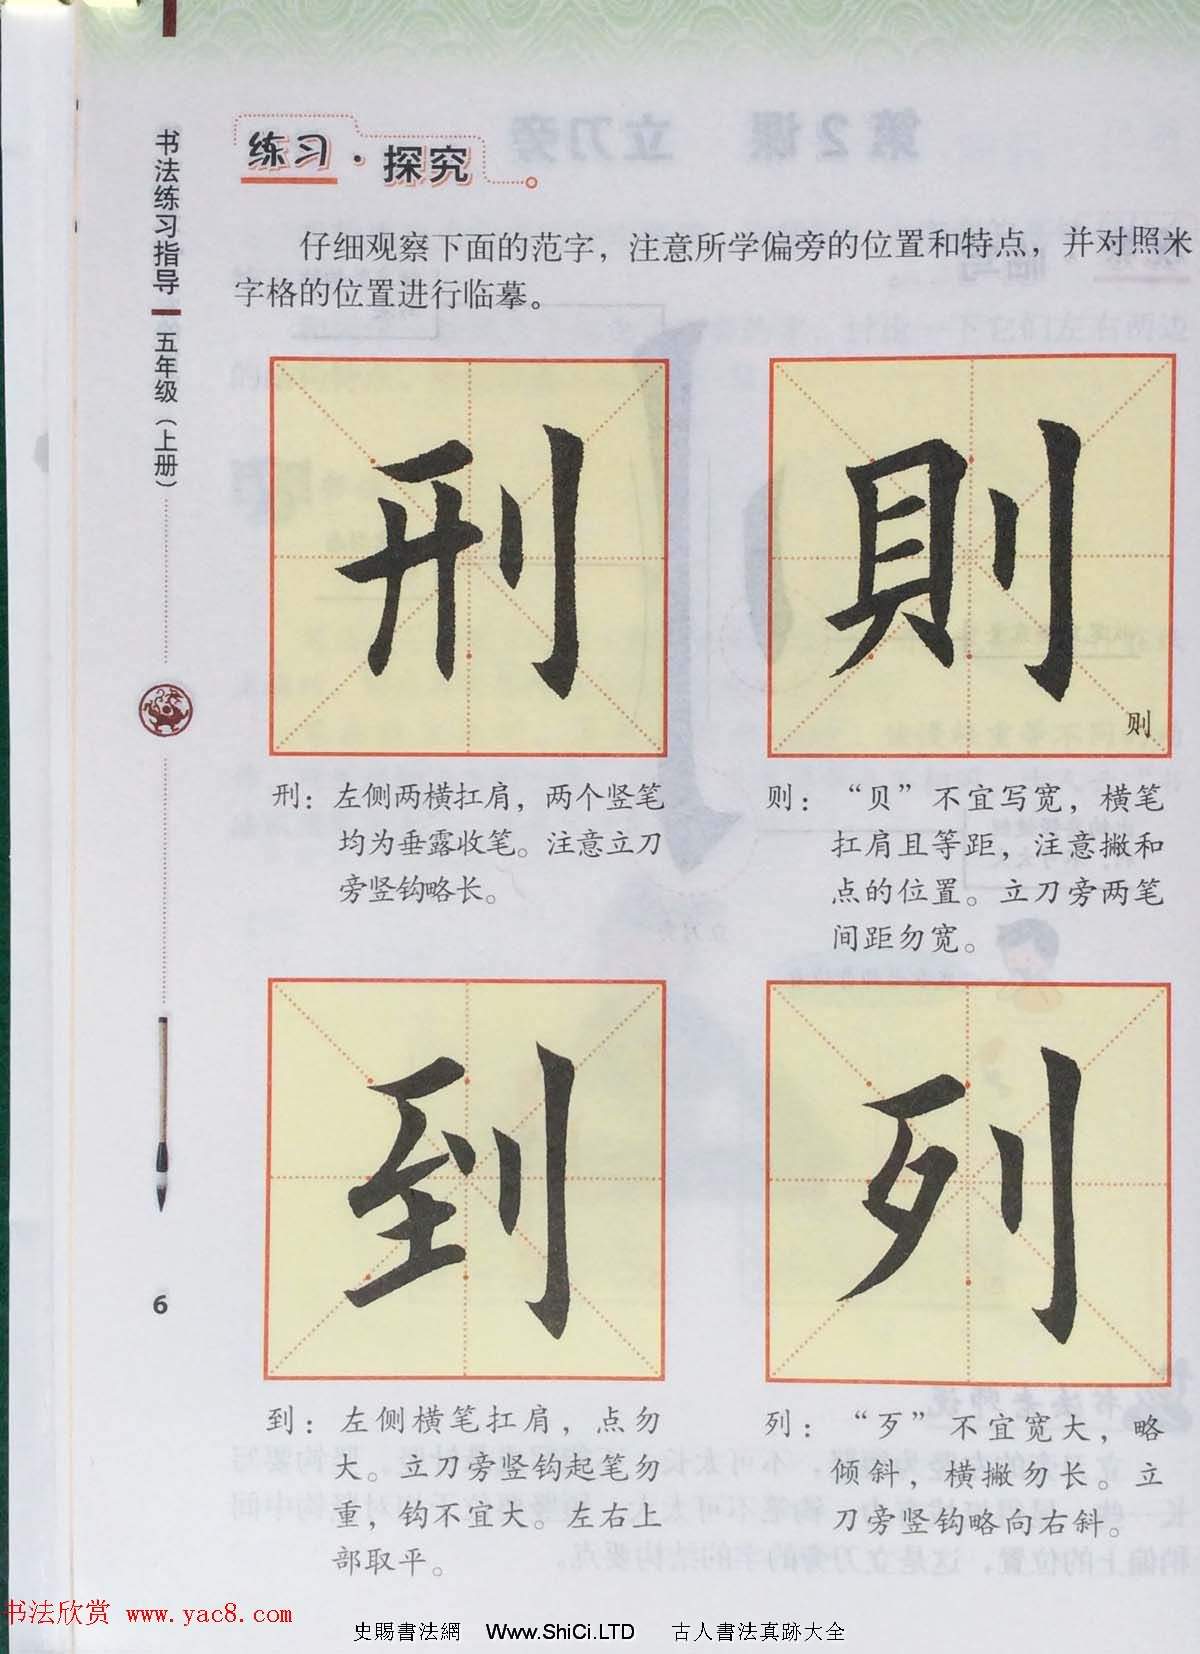 书法练习指导
五年级（上册）
6
练习·探究
仔细观察下面的范字，注意所学偏旁的位置和特点，并对照米
字格的位置进行临摹。
刑
則
则
刑：左侧两横扛肩，两个竖笔
均为垂露收笔。注意立刀
旁竖钩略长。
则：“贝”不宜写宽，横笔
扛肩且等距，注意撇和
点的位置。立刀旁两笔
间距勿宽。
到
列
到：左侧横笔扛肩，点勿
大。立刀旁竖钩起笔勿
重，钩不宜大。左右上
部取平。
列：“歹”不宜宽大，略
倾斜，横撇勿长。立
刀旁竖钩略向右斜。
书法欣赏 www.yac8.com
史賜書法網 Www.ShiCi.LTD 古人書法真跡大全